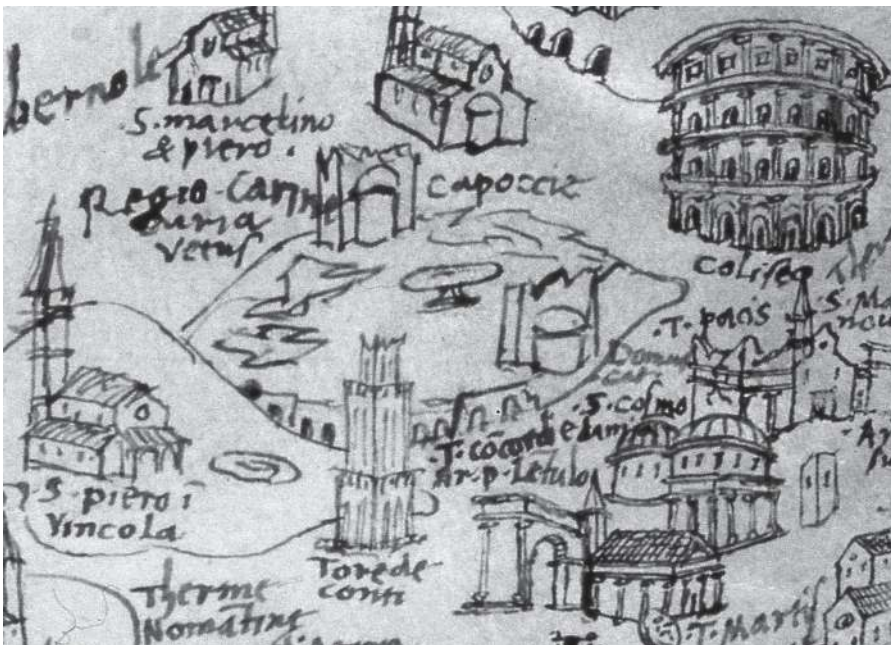 S. marcelino
& piero.
Regio. Carine
Curia
vetus
Capoccie
Coliseo
S. M.
nou
T. pacis
Domus
S. cosmo
e damia
T. cōcordie
Ar. p. Lētulo
S. piero ī
Vincola
Tore de
conti
Therme
Nomātine
T. Martis